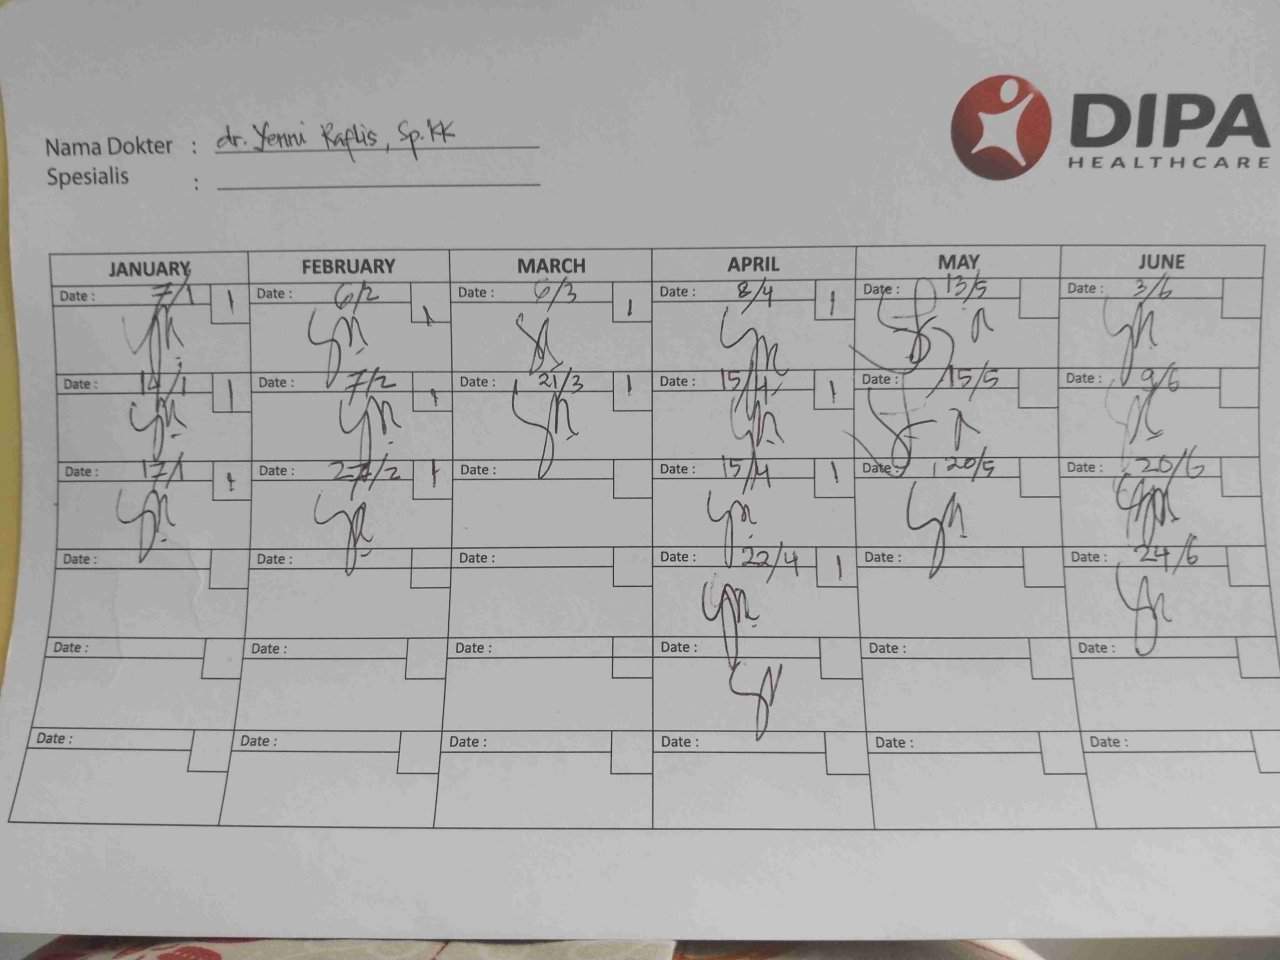 DIPA
HEALTHCARE
Nama Dokter : dr. Yenni Raflis, Sp.KK
Spesialis :
JANUARY FEBRUARY MARCH APRIL MAY JUNE
Date : 7/1 1 Date : 6/2 1 Date : 6/3 1 Date : 8/4 1 Date : 13/5 Date : 3/6
Date : 14/1 1 Date : 7/2 1 Date : 21/3 1 Date : 15/4 1 Date : 15/5 Date : 9/6
Date : 17/1 1 Date : 27/2 1 Date : Date : 15/4 1 Date : 20/5 Date : 20/6
Date : Date : Date : Date : 22/4 1 Date : Date : 24/6
Date : Date : Date : Date : Date : Date :
Date : Date : Date : Date : Date : Date :